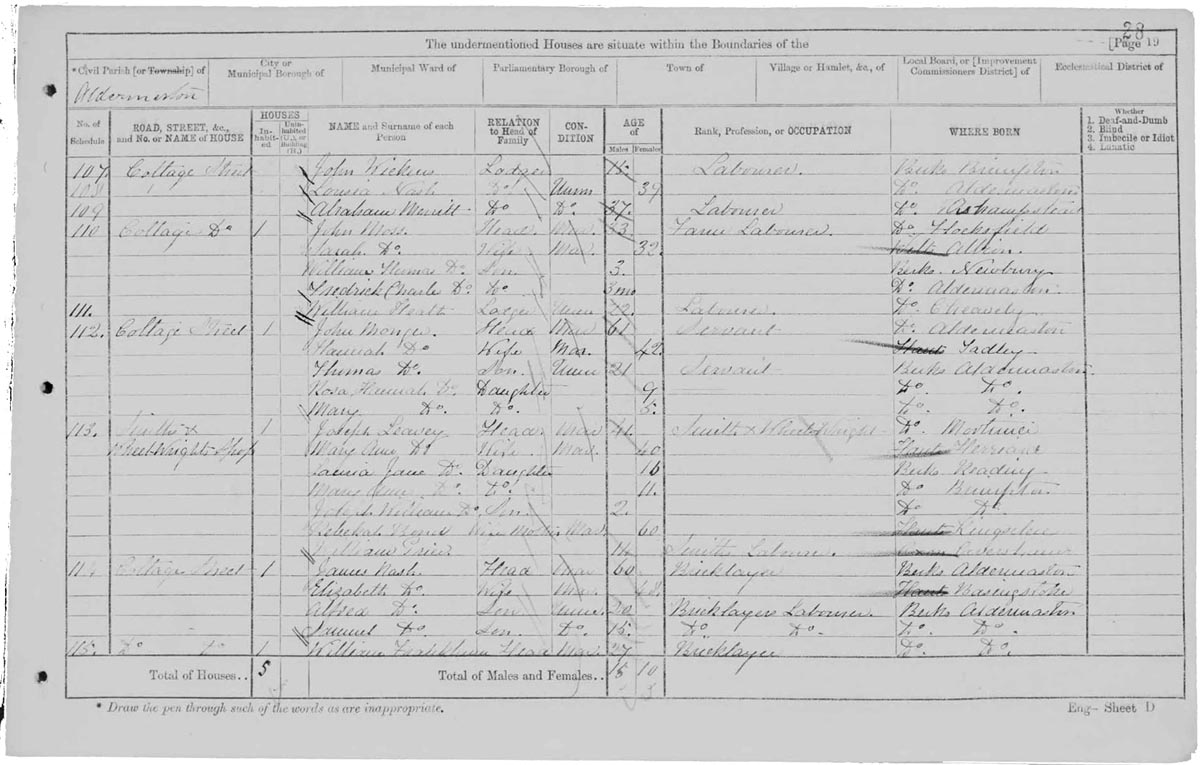 28
The undermentioned Houses are situate within the Boundaries of the [Page 19
*Civil Parish [or Township] of City or Municipal Borough of Municipal Ward of Parliamentary Borough of Town of Village or Hamlet, &c., of Local Board, or [Improvement Commissioners District] of Ecclesiastical District of
Aldermaston
No. of Schedule ROAD, STREET, &c., and No. or NAME of HOUSE HOUSES Inhabited Uninhabited (U.), or Building (B.) NAME and Surname of each Person RELATION to Head of Family CONDITION AGE of Males Females Rank, Profession, or OCCUPATION WHERE BORN Whether 1. Deaf-and-Dumb 2. Blind 3. Imbecile or Idiot 4. Lunatic
107 Cottage Street John Lodger Labourer Berks Brimpton
108 Louisa Nash Do Unm 39 Do. Aldermaston
109 Abraham Merritt Do Do. 37. Labourer Do
110 Cottage Do 1 John Moss Head Mar Farm Labourer Do
Sarah Do. Wife Mar. 32. Wilts
William Thomas Do Son 3. Berks. Newbury
Fredrick Charles Do Do 3mo Do. Aldermaston
111. William Heath Unm Labourer Do Chieveley
112. Cottage Street 1 John Monger Head Mar 61 Servant Do. Aldermaston
Hannah Do Wife Mar. 42. Hants Tadley
Thomas Do. Son Unm 21 Servant Berks Aldermaston
Rosa Hannah Do Daughter 9 Do Do.
Mary Do. Do. 5. Do. Do.
113. Smith & 1 Joseph Head Mar 41 Smith & Wheelwright Do. Mortimer
Wheel Wrights Shop Mary Ann Do Wife Mar. 40 Hants Herriard
Jane Do. Daughter 16 Berks Reading
Mary Ann Do. Do 11. Do Brimpton
Joseph William Do Son 2. Do Do.
Rebekah 60 Hants
William 14 Smiths Labourer Caversham
114 Cottage Street 1 James Nash Head Mar 60 Bricklayer Berks Aldermaston
Elizabeth Do. Wife Mar. 48. Hants Basingstoke
Alfred Do. Son Unm. 20 Bricklayers Labourer. Berks Aldermaston
Samuel Do. Son Do. 15. Do Do. Do. Do.
115. Do Do 1 William Head Mar 27 Bricklayer Do. Do.
Total of Houses.. 5 Total of Males and Females.. 15 10
* Draw the pen through such of the words as are inappropriate. Eng- Sheet D